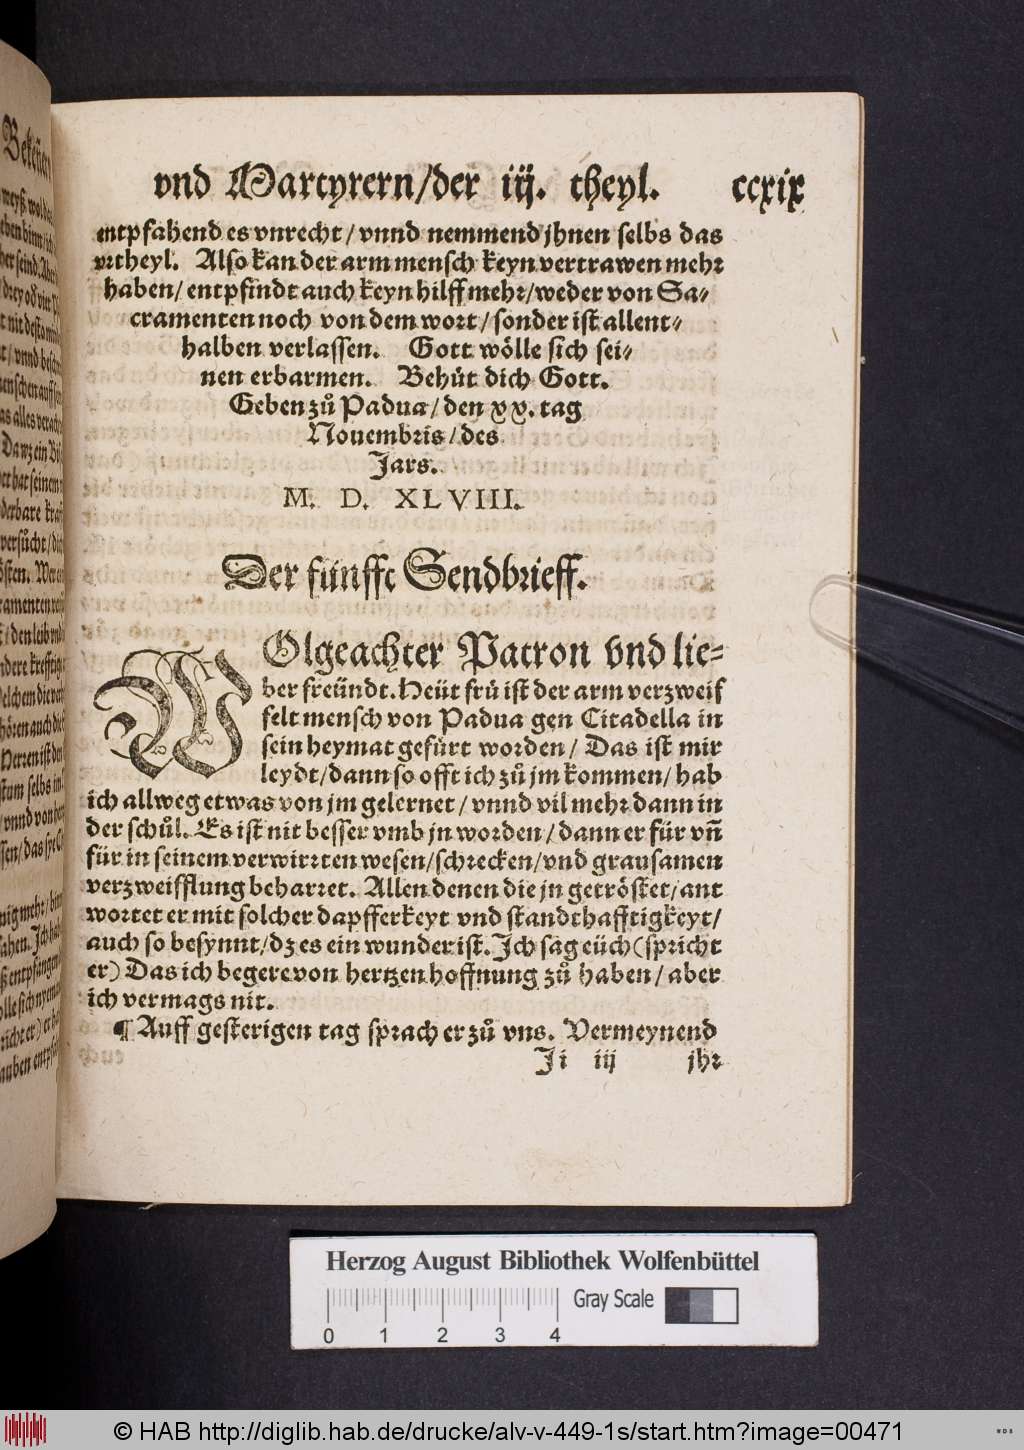 vnd Martyrern/der iij. theyl. ccxix
entpfahend es vnrecht/vnnd nemmend jhnen selbs das
vrtheyl. Also kan der arm mensch keyn vertrawen mehr
haben/entpfindt auch keyn hilff mehr/weder von Sa-
cramenten noch von dem wort/sonder ist allent-
halben verlassen. Gott wölle sich sei-
nen erbarmen. Behüt dich Gott.
Geben zů Padua/den xx. tag
Nouembris/des
Jars.
M. D. XLVIII.
Der fünffte Sendbrieff.
WOlgeachter Patron vnd lie-
ber freündt. Heüt frü ist der arm verzweif
felt mensch von Padua gen Citadella in
sein heymat gefürt worden/ Das ist mir
leydt/dann so offt ich zů jm kommen/hab
ich allweg etwas von jm gelernet/vnnd vil mehr dann in
der schůl. Es ist nit besser vmb jn worden/dann er für vñ
für in seinem verwirrten wesen/schrecken/vnd grausamen
verzweifflung beharret. Allen denen die jn getröstet/ant
wortet er mit solcher dapfferkeyt vnd standthafftigkeyt/
auch so besynnt/dz es ein wunder ist. Ich sag eüch (spricht
er) Das ich begere von hertzen hoffnung zů haben/aber
ich vermags nit.
¶ Auff gesterigen tag sprach er zů vns. Vermeynend
Ji iij jhr
Herzog August Bibliothek Wolfenbüttel
0 1 2 3 4 Gray Scale
© HAB http://diglib.hab.de/drucke/alv-v-449-1s/start.htm?image=00471